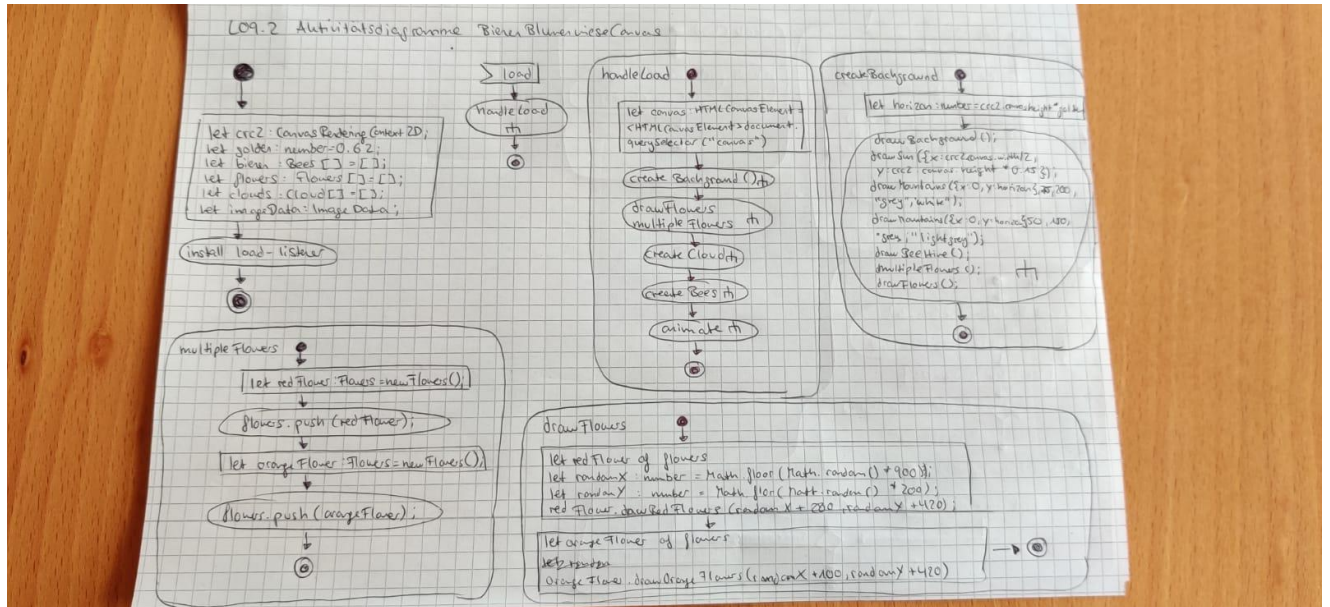 L09.2 Aktivitätsdiagramme Bienen Blumenwiese Canvas
let crc2: CanvasRenderingContext2D;
let golden: number=0.62;
let bienen: Bees[]=[];
let flowers: Flowers[]=[];
let clouds: Cloud[]=[];
let imageData: ImageData;
install load-listener
load
handleLoad
handleLoad
let canvas: HTMLCanvasElement =
<HTMLCanvasElement>document.
querySelector("canvas")
createBackground()
drawFlowers
multipleFlowers
createCloud
createBees
animate
createBackground
let horizon: number=crc2.canvas.height*golden
drawBackground();
drawSun({x:crc2.canvas.width/2,
y:crc2.canvas.height * 0.15});
drawMountains({x:0, y:horizon}, 200,
"grey","white");
drawMountains({x:0, y:horizon}50, 150,
"grey","lightgrey");
drawBeeHive();
multipleFlowers();
drawFlowers();
multipleFlowers
let redFlower: Flowers=newFlowers();
flowers.push(redFlower);
let orangeFlower: Flowers=newFlowers();
flowers.push(orangeFlower);
drawFlowers
let redFlower of flowers
let randomX: number = Math floor(Math.random() * 900);
let randomY: number = Math flor(Math.random() * 200);
redFlower.drawRedFlowers(randomX + 200, randomY + 420);
let orangeFlower of flowers
orangeFlower.drawOrangeFlowers(randomX + 100, randomY + 420)